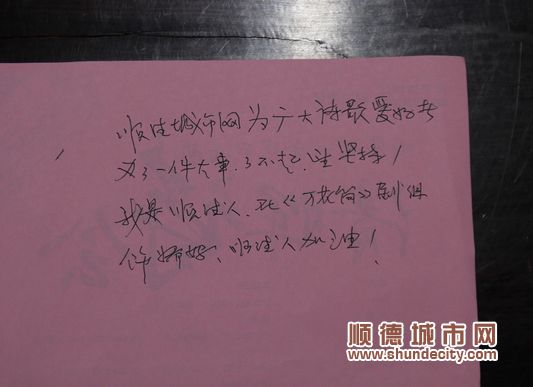 顺德城市网为广大诗歌爱好者
办了一件大事,了不起,坚持!
我是顺德人,《万花筒》副
顺德人加油!
顺德城市网
www.shundecity.com